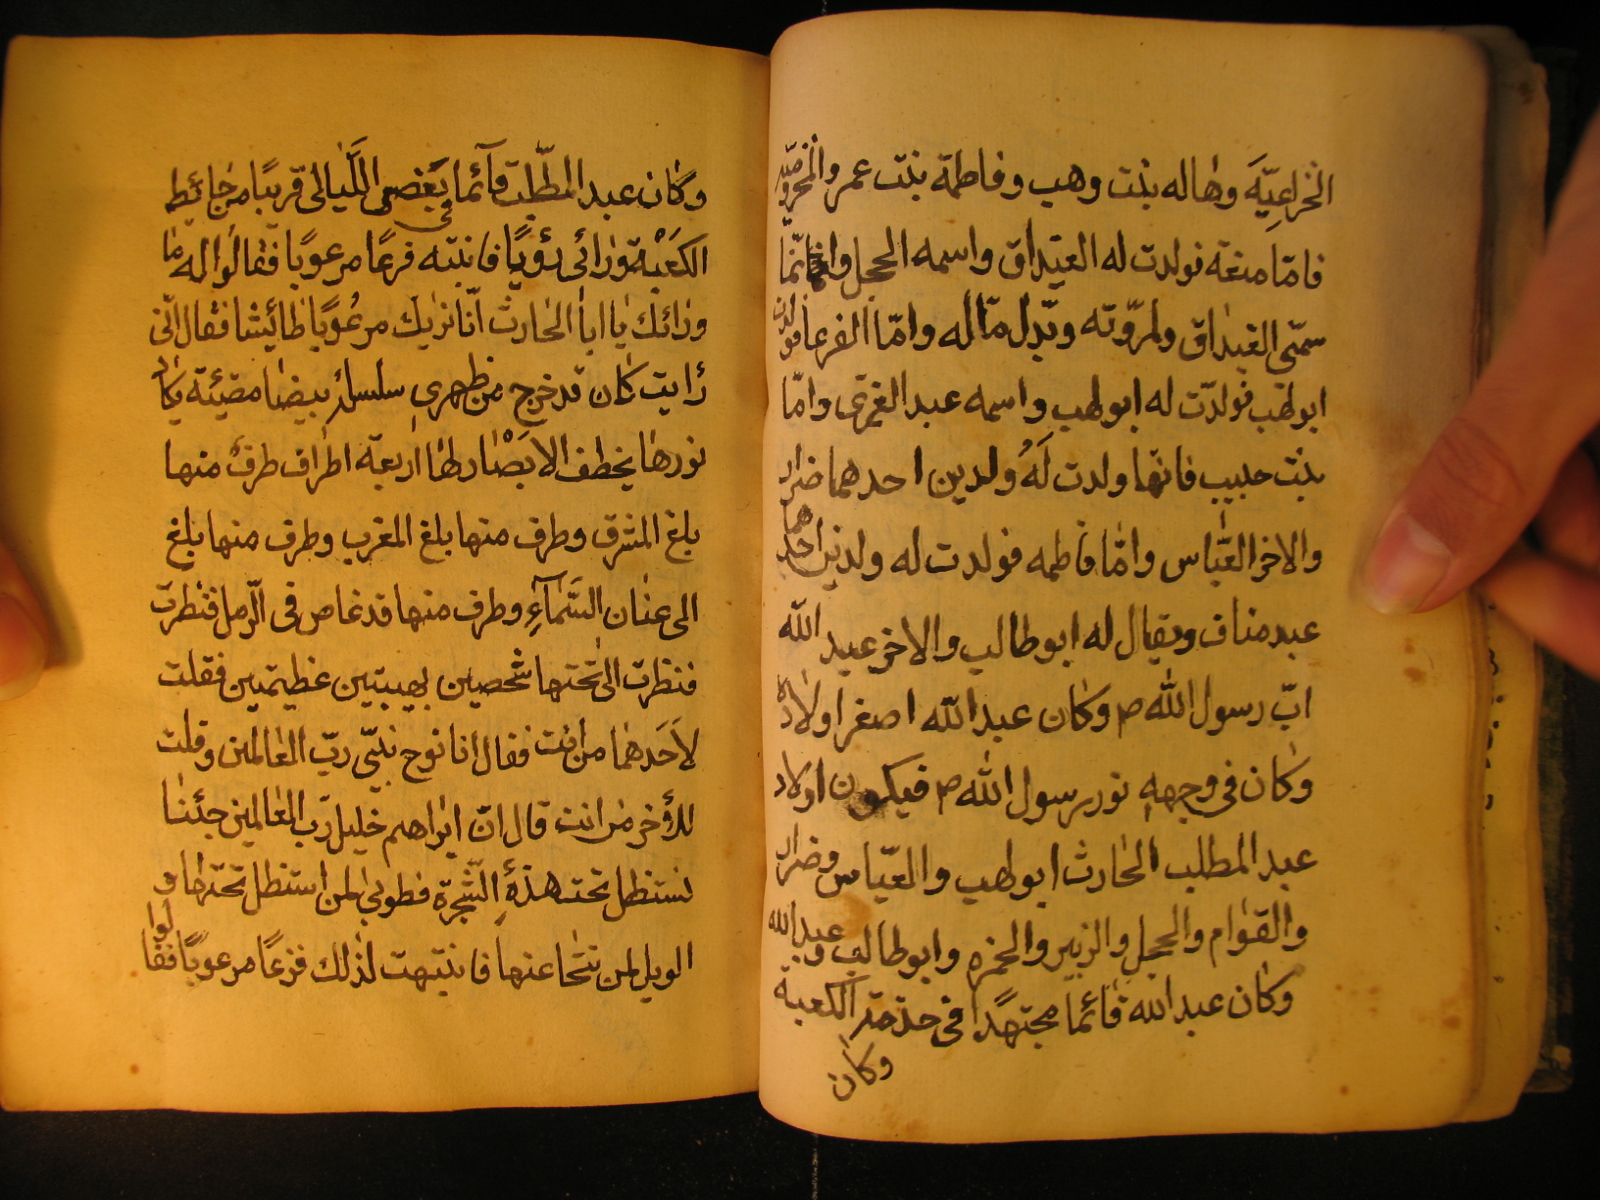 الخزاعيّة وهاله بنت وهب وفاطمة بنت عمر والمخزوميّه
فامّا منعة فولدت له الغيداق واسمه الحجل وانّما
سمّى الغيداق ولمروّته وبذل ماله وامّا الفرعا فولدت
ابولهب فولدت له ابولهب واسمه عبد العزى وامّا
بنت حبيب فانّها ولدت له ولدين احدهما ضرار
والاخر العّباس وامّا فاطمه فولدت له ولدين احدهما
عبد مناف ويقال له ابوطالب والاخر عبد الله
ابّ رسول الله ص وكان عبد الله اصغر اولاده
وكان فى وجهه نور رسول الله ص فيكون اولاد
عبد المطلب الحارث ابولهب والعبّاس وضرار
والقوام والحجل والزبير والحمزه وابوطالب وعبدالله
وكان عبد الله قائما مجتهدًا فى خدمة الكعبة
وكان
وكان عبد المطّلب قآئما فى بعض اللّيالى قريبًا من حائط
الكعبة ورائى رؤيًا فانتبه فزعًا مرعوبًا فقالوا له ما
ورائك يا ابا الحارث انّا نريك مرعوبًا طائيشا فقال انّى
رايت كان قد خرج من ظهرى سلسلة بيضا مضيئة يكاد
نورها يخطف الابصار لها اربعة اطراف طرف منها
بلغ المشرق وطرف منها بلغ المغرب وطرف منها بلغ
الى عنان السّمآءِ وطرف منها قد غاص فى الرّمل فنظرت
فنظرت الى تحتها شخصين بهيبتين عظيمين فقلت
لاحدهما من انت فقال انا نوح نبىّ ربّ العالمين وقلت
للأخر من انت قال انّ ابراهيم خليل ربّ العالمين جئنا
نستظل تحت هذه الشّجرة فطوبى لمن استظل تحتها و
الويل لمن تنحا عنها فانتبهت لذلك فزعًا مرعوبًا فقالوا